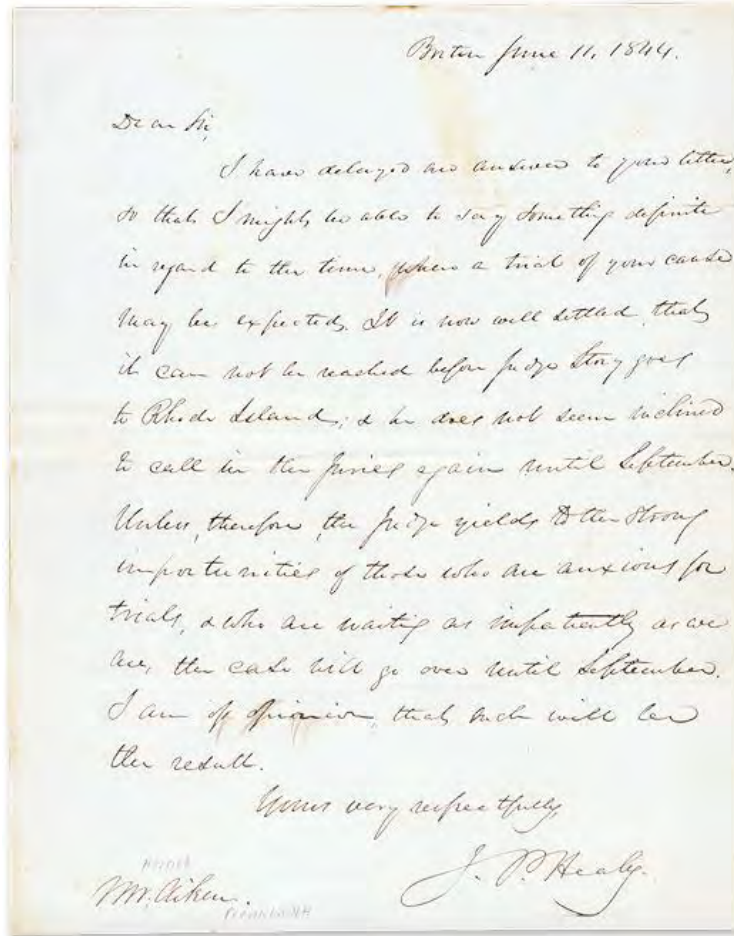 Boston June 11, 1844.
Dear Sir,
I have delayed an answer to your letter,
so that I might be able to say something definite
in regard to the time, when a trial of your cause
may be expected. It is now well settled, that
it can not be reached before Judge Story goes
to Rhode Island; & he does not seem inclined
to call in the juries again until September.
Unless, therefore, the Judge yields to the strong
importunities of those who are anxious for
trials, & who are waiting as impatiently as we
are, the case will go over until September.
I am of opinion, that such will be
the result.
Yours very respectfully,
J. P. Healy.
Mr. Aiken.
Franklin NH